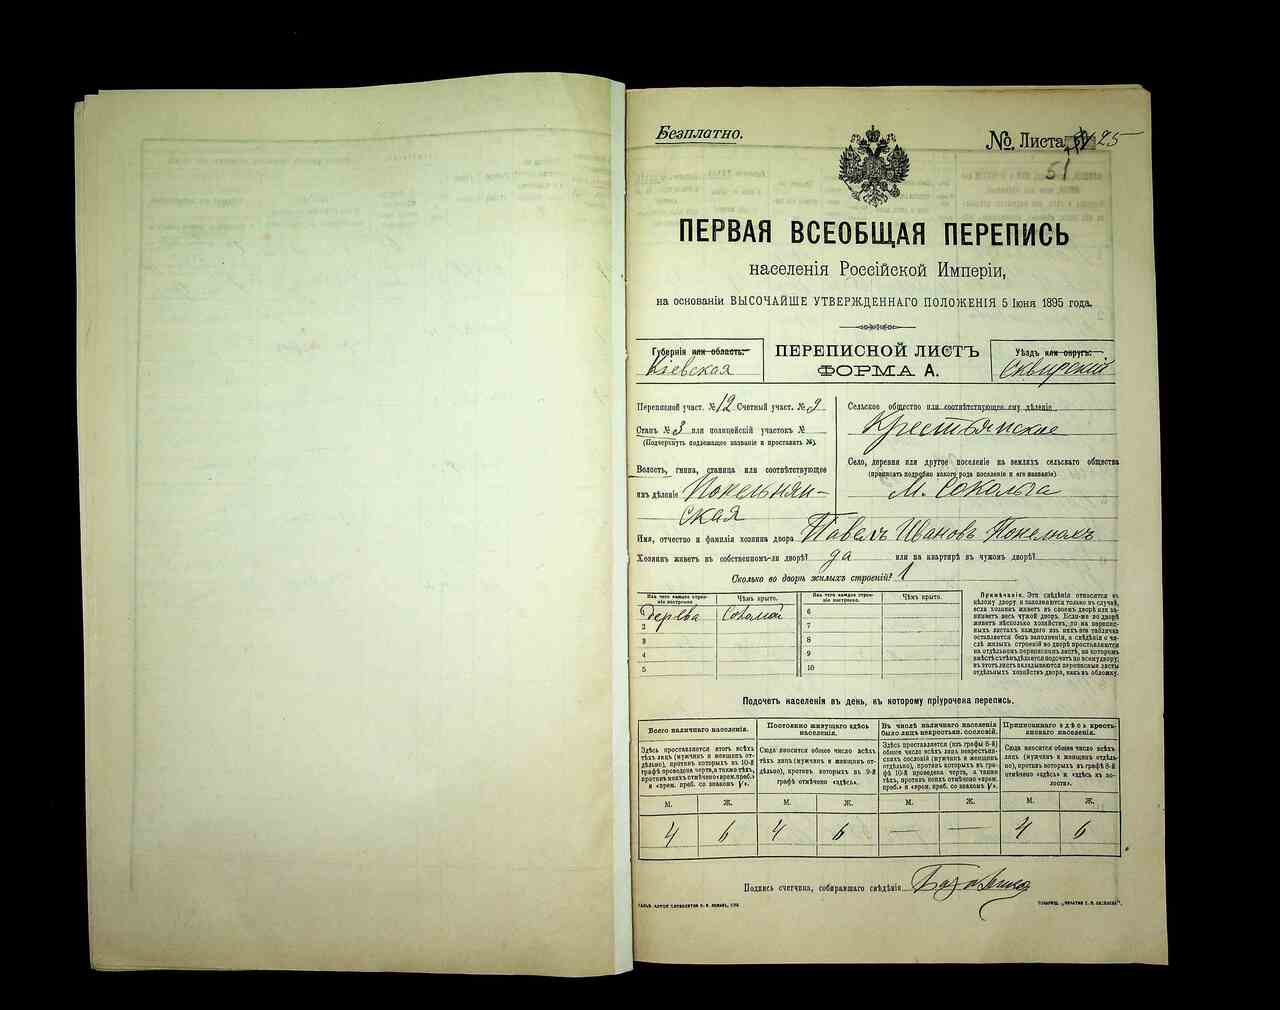 Безплатно.
№ Листа 25
51
ПЕРВАЯ ВСЕОБЩАЯ ПЕРЕПИСЬ
населенія Россійской Имперіи,
на основаніи ВЫСОЧАЙШЕ УТВЕРЖДЕННАГО ПОЛОЖЕНІЯ 5 Іюня 1895 года.
Губернія или область:
Кіевская
ПЕРЕПИСНОЙ ЛИСТЪ
ФОРМА А.
Уѣздъ или округъ:
Сквирскій
Переписной участ. № 12 Счетный участ. № 9
Станъ № 3 или полицейскій участокъ №
(Подчеркнуть подлежащее названіе и проставить №).
Волость, гмина, станица или соотвѣтствующее
имъ дѣленіе
ская
Сельское общество или соотвѣтствующее ему дѣленіе
Крестьянское
Село, деревня или другое поселеніе на земляхъ сельскаго общества
(прописать подробно какого рода поселеніе и его названіе)
М. Соколча
Имя, отчество и фамилія хозяина двора Павелъ Ивановъ
Хозяинъ живетъ въ собственномъ-ли дворѣ? да или на квартирѣ въ чужомъ дворѣ?
Сколько во дворѣ жилыхъ строеній? 1
Изъ чего каждое строеніе построено.
Чѣмъ крыто.
Изъ чего каждое строеніе построено.
Чѣмъ крыто.
дерева соломой
2
3
4
5
6
7
8
9
10
Примѣчаніе. Эти свѣдѣнія относятся къ
цѣлому двору и заполняются только въ случаѣ,
если хозяинъ живетъ въ своемъ дворѣ или занимаетъ
весь чужой дворъ. Если-же во дворѣ
живетъ нѣсколько хозяйствъ, то на переписныхъ
листахъ каждаго изъ нихъ эта табличка
оставляется безъ заполненія, а свѣдѣнія о числѣ
жилыхъ строеній во дворѣ проставляются
на отдѣльномъ переписномъ листѣ, на которомъ
вмѣстѣ съ тѣмъ дѣлается подсчетъ по всему двору;
въ этотъ листъ вкладываются переписные листы
отдѣльныхъ хозяйствъ двора, какъ въ обложку.
Подсчетъ населенія въ день, къ которому пріурочена перепись.
Всего наличнаго населенія.
Здѣсь проставляется итогъ всѣхъ
тѣхъ лицъ (мужчинъ и женщинъ отдѣльно),
противъ которыхъ въ 10-й
графѣ проведена черта, а также тѣхъ,
противъ коихъ отмѣчено «врем. преб.»
и «врем. преб. со знакомъ V».
Постоянно живущаго здѣсь
населенія.
Сюда вносится общее число всѣхъ
тѣхъ лицъ (мужчинъ и женщинъ отдѣльно),
противъ которыхъ въ 9-й
графѣ отмѣчено «здѣсь».
Въ числѣ наличнаго населенія
было лицъ некрестьян. сословій.
Здѣсь проставляется (изъ графы 8-й)
общее число всѣхъ лицъ некрестьянскихъ
сословій (мужчинъ и женщинъ
отдѣльно), противъ которыхъ въ графѣ
10-й проведена черта, а также
тѣхъ, противъ коихъ отмѣчено «врем.
преб.» и «врем. преб. со знакомъ V».
Приписаннаго здѣсь крестьянскаго
населенія.
Сюда вносится общее число всѣхъ
лицъ (мужчинъ и женщинъ отдѣльно),
противъ которыхъ въ графѣ 8-й
отмѣчено «здѣсь» и «здѣсь къ волости».
М. Ж. М. Ж. М. Ж. М. Ж.
4 6 4 6 — — 4 6
Подпись счетчика, собиравшаго свѣдѣнія